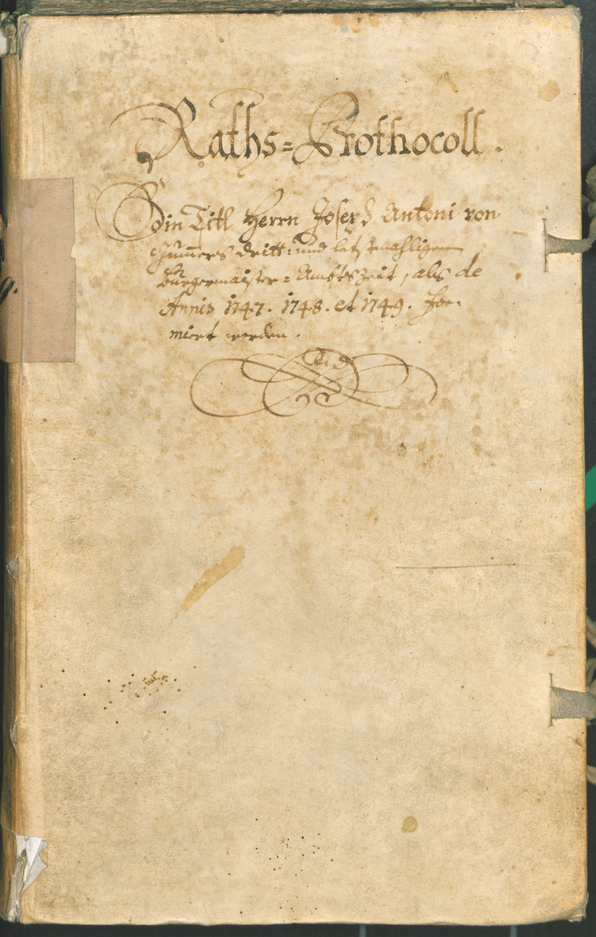 Raths=Prothocoll.
Bej Titl Herrn Joseph Antoni von
dritt= und letstmahligen
Burgermaister=Ambtszeit, als de
Annis 1747. 1748. et 1749. for=
mirt worden.